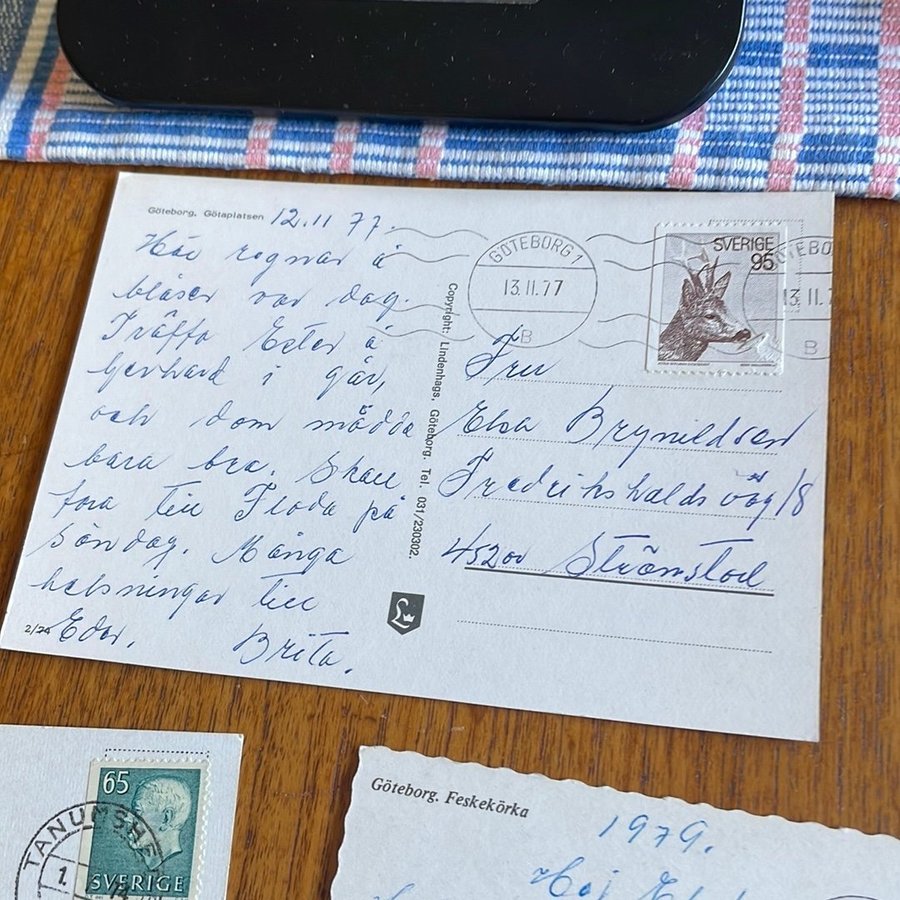 Göteborg. Götaplatsen 12.11 77.
Här regnar å
blåser var dag.
Träffa Ester å
Gerhard i går,
och dom mådda
bara bra. Skall
fara till Floda på
Söndag. Många
hälsningar till
Eder. Brita.
2/74
Copyright: Lindenhags, Göteborg. Tel. 031/230302.
L
GÖTEBORG 1
13.11.77
B
SVERIGE
95
GÖTEBO
13.11.7
B
Fru
Elsa Brynildsen
Fredrikshalds väg 18
45200 Strömstad
65
SVERIGE
TANUMSHE
1.
Göteborg. Feskekörka
1979.
Hej